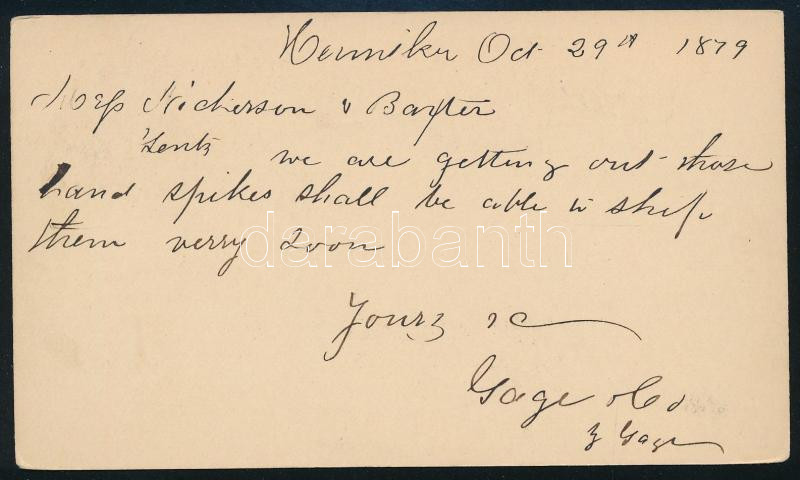 Henniker Oct 29th 1879
Mess Nickerson & Baxter
Gents we are getting out those
hand spikes shall be able to ship
them verry Soon
darabanth
Yours &c
Gage & Co
Gage